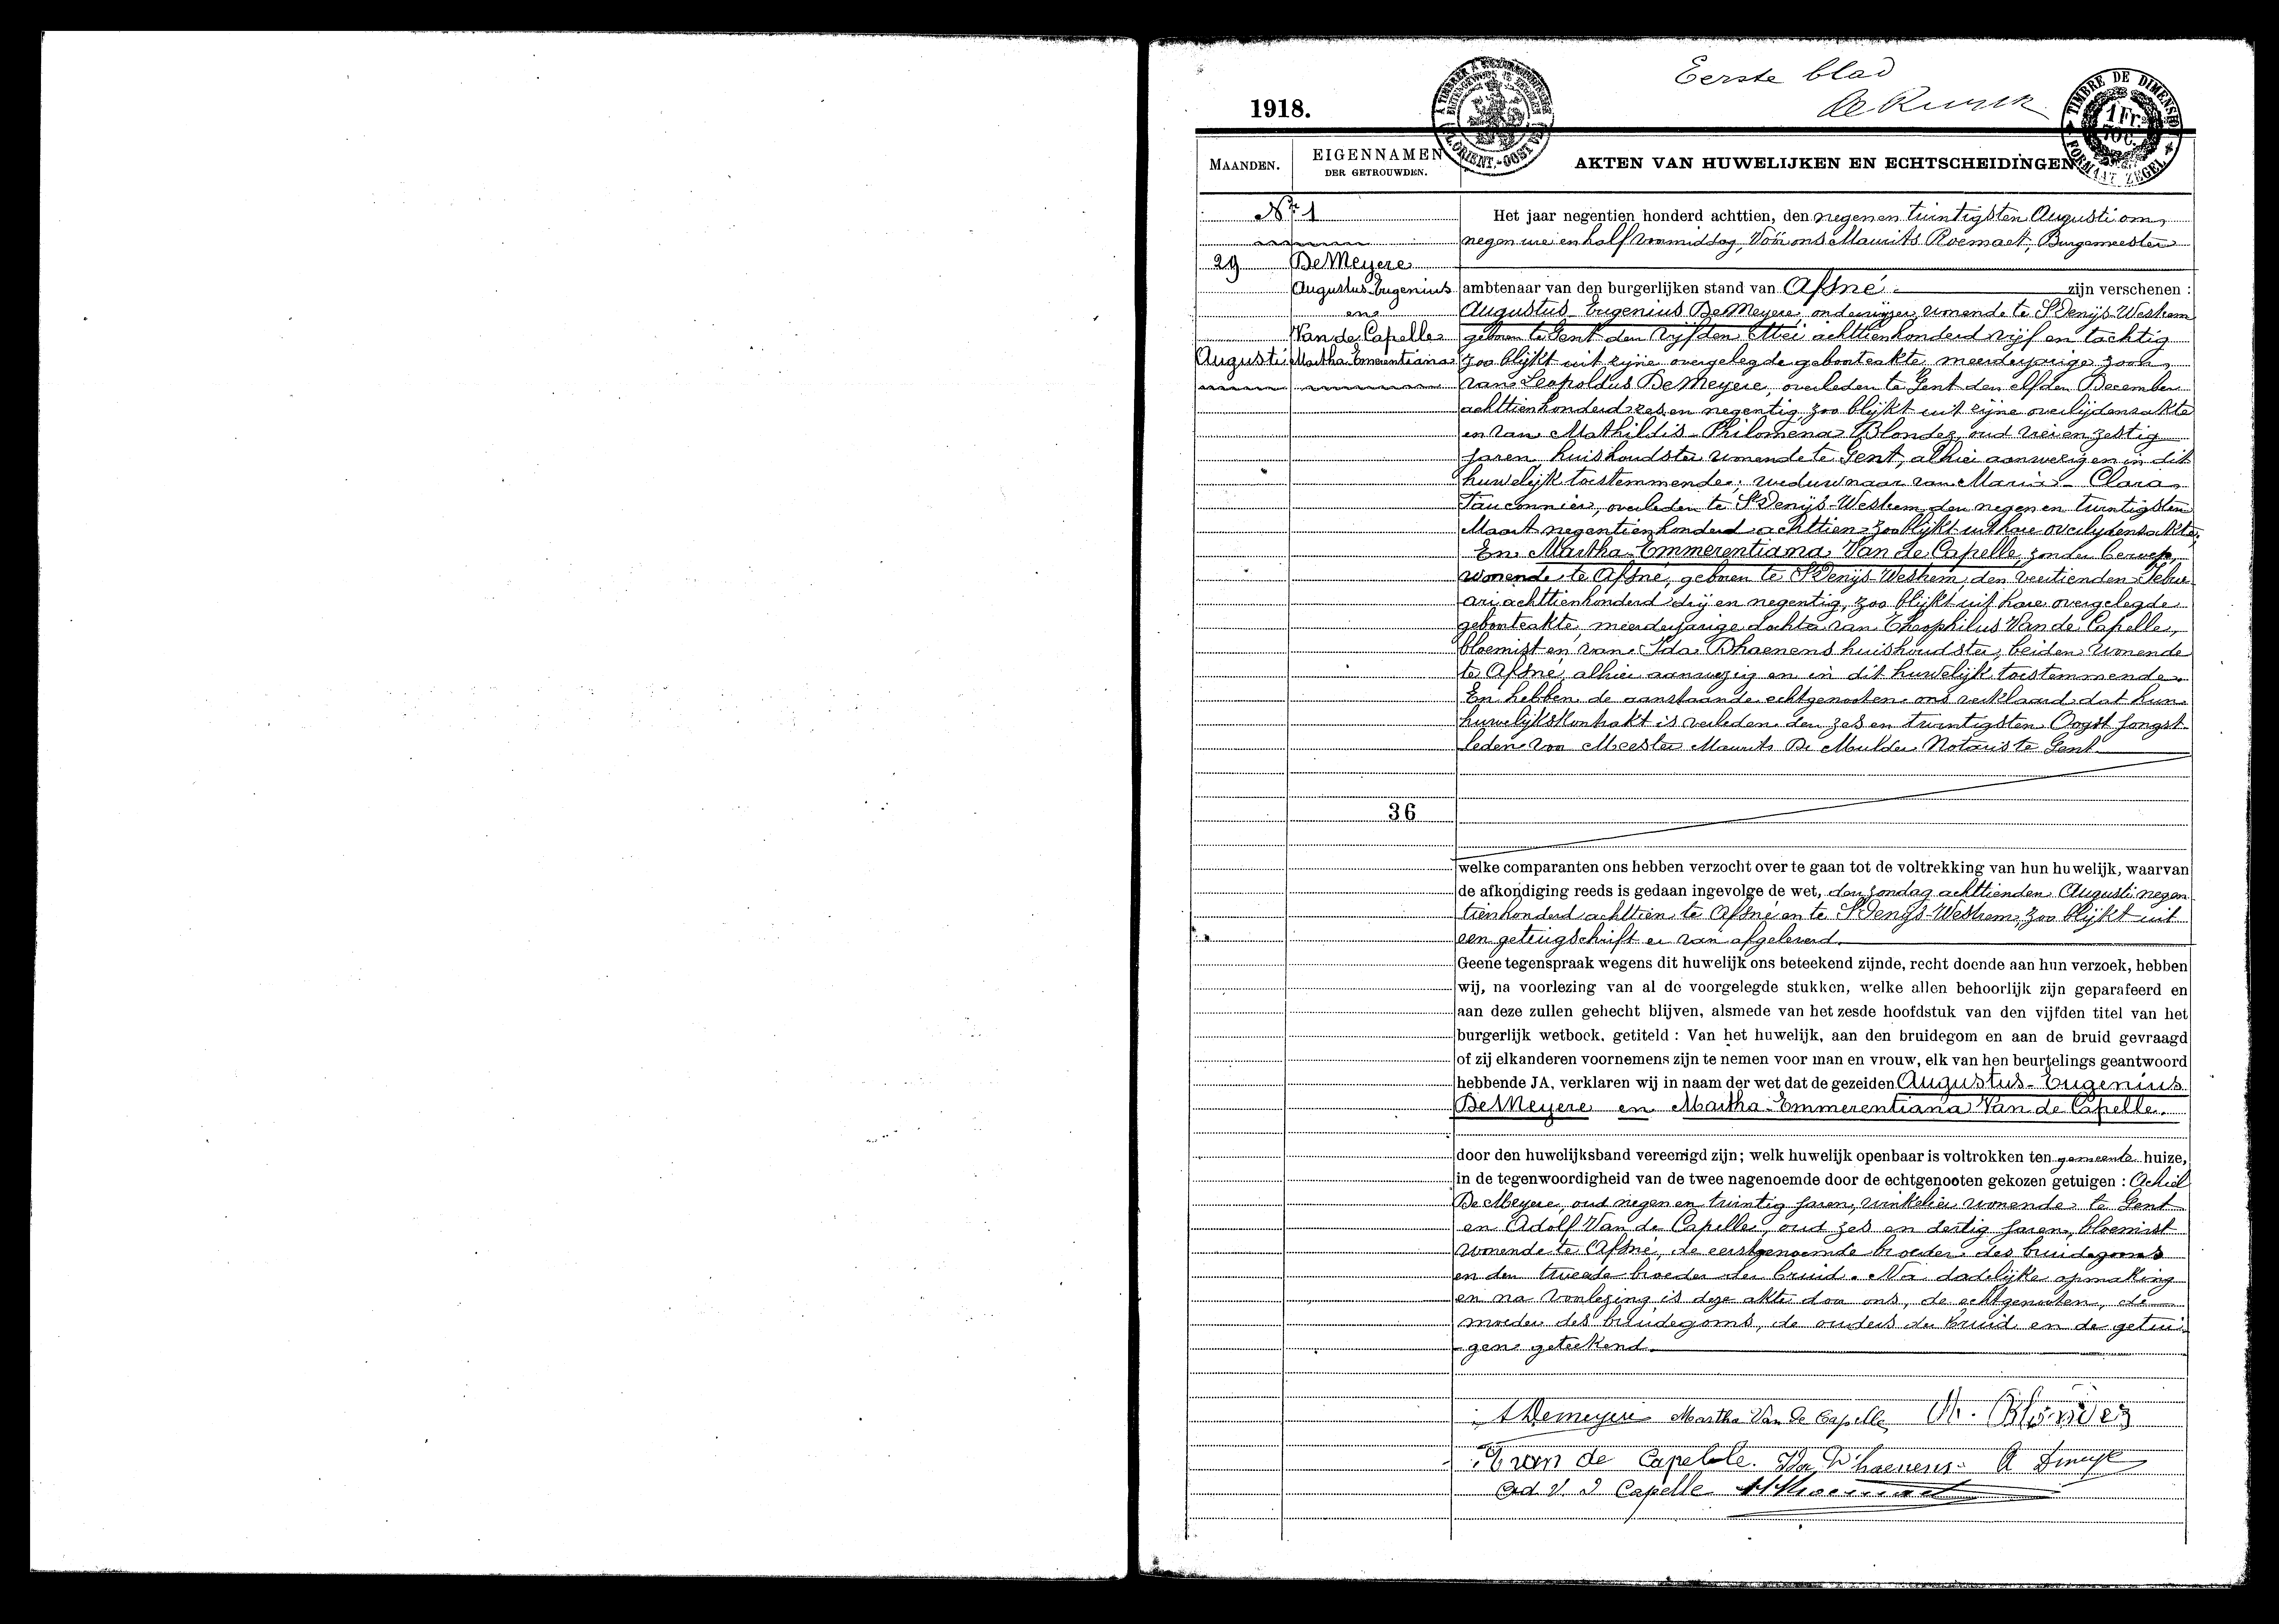 Eerste blad
1918.
TIMBRE DE DIMENSION
1 Fr.
70 C.
FORMAAT ZEGEL
FL. ORIENT.-OOST VL.
MAANDEN.
EIGENNAMEN
DER GETROUWDEN.
AKTEN VAN HUWELIJKEN EN ECHTSCHEIDINGEN
Nr 1
29
Augusti
De Meyere
Augustus-Eugenius
en
Van de Capelle
Martha-Emerentiana
36
Het jaar negentien honderd achttien, den negen en twintigsten Augusti om
negen ure en half voormiddag, Vóór ons Maurits Roemaet, Burgemeester
ambtenaar van den burgerlijken stand van Afsné zijn verschenen :
Augustus-Eugenius De Meyere, onderwijzer, wonende te St Denijs-Westrem
geboren te Gent den vijfden Mei achttienhonderd vijf en tachtig
zoo blijkt uit zijne overgelegde geboorteakte, meerderjarige zoon
van Leopoldus De Meyere, overleden te Gent den elfden December
achttienhonderd zes en negentig, zoo blijkt uit zijne overlijdensakte
en van Mathildis-Philomena Blondez, oud vier en zestig
jaren, huishoudster wonende te Gent, alhier aanwezig en in dit
huwelijk toestemmende; weduwnaar van Maria-Clara
Fauconnier, overleden te St Denijs-Westrem den negen en twintigsten
Maart negentienhonderd achttien zoo blijkt uit hare overlijdensakte,
En Martha-Emmerentiana Van de Capelle, zonder beroep,
wonende te Afsné, geboren te St Denijs-Westrem, den veertienden Febru-
ari achttienhonderd drij en negentig, zoo blijkt uit hare overgelegde
geboorteakte, meerderjarige dochter van Theophilus Van de Capelle,
bloemist en van Ida Dhaenens huishoudster, beiden wonende
te Afsné, alhier aanwezig en in dit huwelijk toestemmende.
En hebben de aanstaande echtgenooten ons verklaard dat hun
huwelijkskontrakt is verleden den zes en twintigsten Oogst jongst-
leden voor Meester Maurits De Mulder Notaris te Gent
welke comparanten ons hebben verzocht over te gaan tot de voltrekking van hun huwelijk, waarvan
de afkondiging reeds is gedaan ingevolge de wet, den zondag achttienden Augusti negen
tienhonderd achttien te Afsné en te St Denijs-Westrem, zoo blijkt uit
een getuigschrift er van afgeleverd.
Geene tegenspraak wegens dit huwelijk ons beteekend zijnde, recht doende aan hun verzoek, hebben
wij, na voorlezing van al de voorgelegde stukken, welke allen behoorlijk zijn geparafeerd en
aan deze zullen gehecht blijven, alsmede van het zesde hoofdstuk van den vijfden titel van het
burgerlijk wetboek, getiteld : Van het huwelijk, aan den bruidegom en aan de bruid gevraagd
of zij elkanderen voornemens zijn te nemen voor man en vrouw, elk van hen beurtelings geantwoord
hebbende JA, verklaren wij in naam der wet dat de gezeiden Augustus-Eugenius
De Meyere en Martha-Emmerentiana Van de Capelle.
door den huwelijksband vereenigd zijn; welk huwelijk openbaar is voltrokken ten gemeente huize,
in de tegenwoordigheid van de twee nagenoemde door de echtgenooten gekozen getuigen : Achiel
De Meyere, oud negen en twintig jaren, winkelier wonende te Gent
en Adolf Van de Capelle, oud zes en dertig jaren, bloemist
wonende te Afsné, de eerstgenoemde broeder des bruidegoms
en den tweede broeder der bruid. Na dadelijke opmaking
en na voorlezing is deze akte door ons, de echtgenooten, de
moeder des bruidegoms, de ouders der bruid en de getui-
gen geteekend.
A Demeyere Martha Van de Capelle M. Blondez
T van de Capelle. Ida D'haenens
Ad V. D Capelle